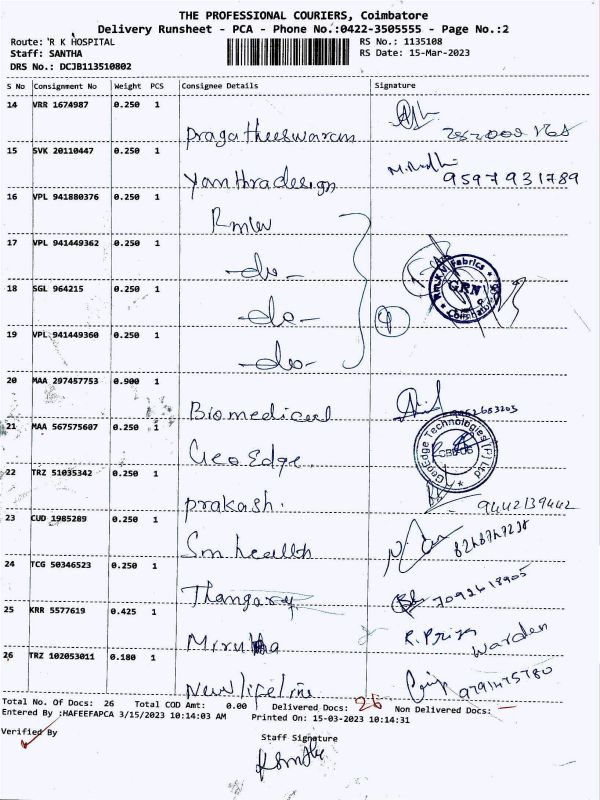 THE PROFESSIONAL COURIERS, Coimbatore
Delivery Runsheet - PCA - Phone No.:0422-3505555 - Page No.:2
Route: R K HOSPITAL RS No.: 1135108
Staff: SANTHA RS Date: 15-Mar-2023
DRS No.: DCJB113510802
S No Consignment No Weight PCS Consignee Details Signature
14 VRR 1674987 0.250 1
Pragatheeswaran
15 SVK 20110447 0.250 1
Yanthradesign 9597931789
16 VPL 941880376 0.250 1
17 VPL 941449362 0.250 1
-do-
18 SGL 964215 0.250 1
-do-
19 VPL 941449360 0.250 1
-do-
GRN
20 MAA 297457753 0.900 1
Biomedical
21 MAA 567575607 0.250 1
Geo Edge
GeoEdge Technologies (P) Ltd
22 TRZ 51035342 0.250 1
prakash. 9442139442
23 CUD 1985289 0.250 1
Sm health
24 TCG 50346523 0.250 1
25 KRR 5577619 0.425 1
R. Priya
Warden
26 TRZ 102053011 0.180 1
New lifeline
Total No. Of Docs: 26 Total COD Amt: 0.00 Delivered Docs: 26 Non Delivered Docs: -
Entered By :HAFEEFAPCA 3/15/2023 10:14:03 AM Printed On: 15-03-2023 10:14:31
Verified By Staff Signature